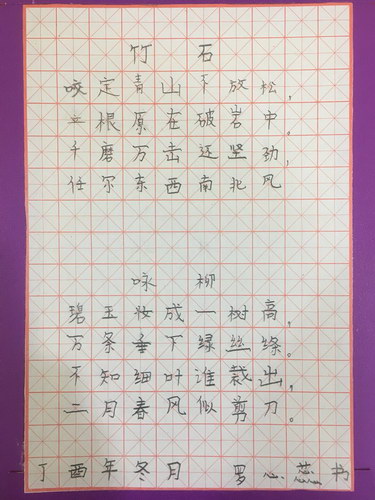 竹 石
咬定青山不放松，
立根原在破岩中。
千磨万击还坚劲，
任尔东西南北风
咏 柳
碧玉妆成一树高，
万条垂下绿丝绦。
不知细叶谁裁出，
二月春风似剪刀。
丁酉年冬月 罗心蕊书